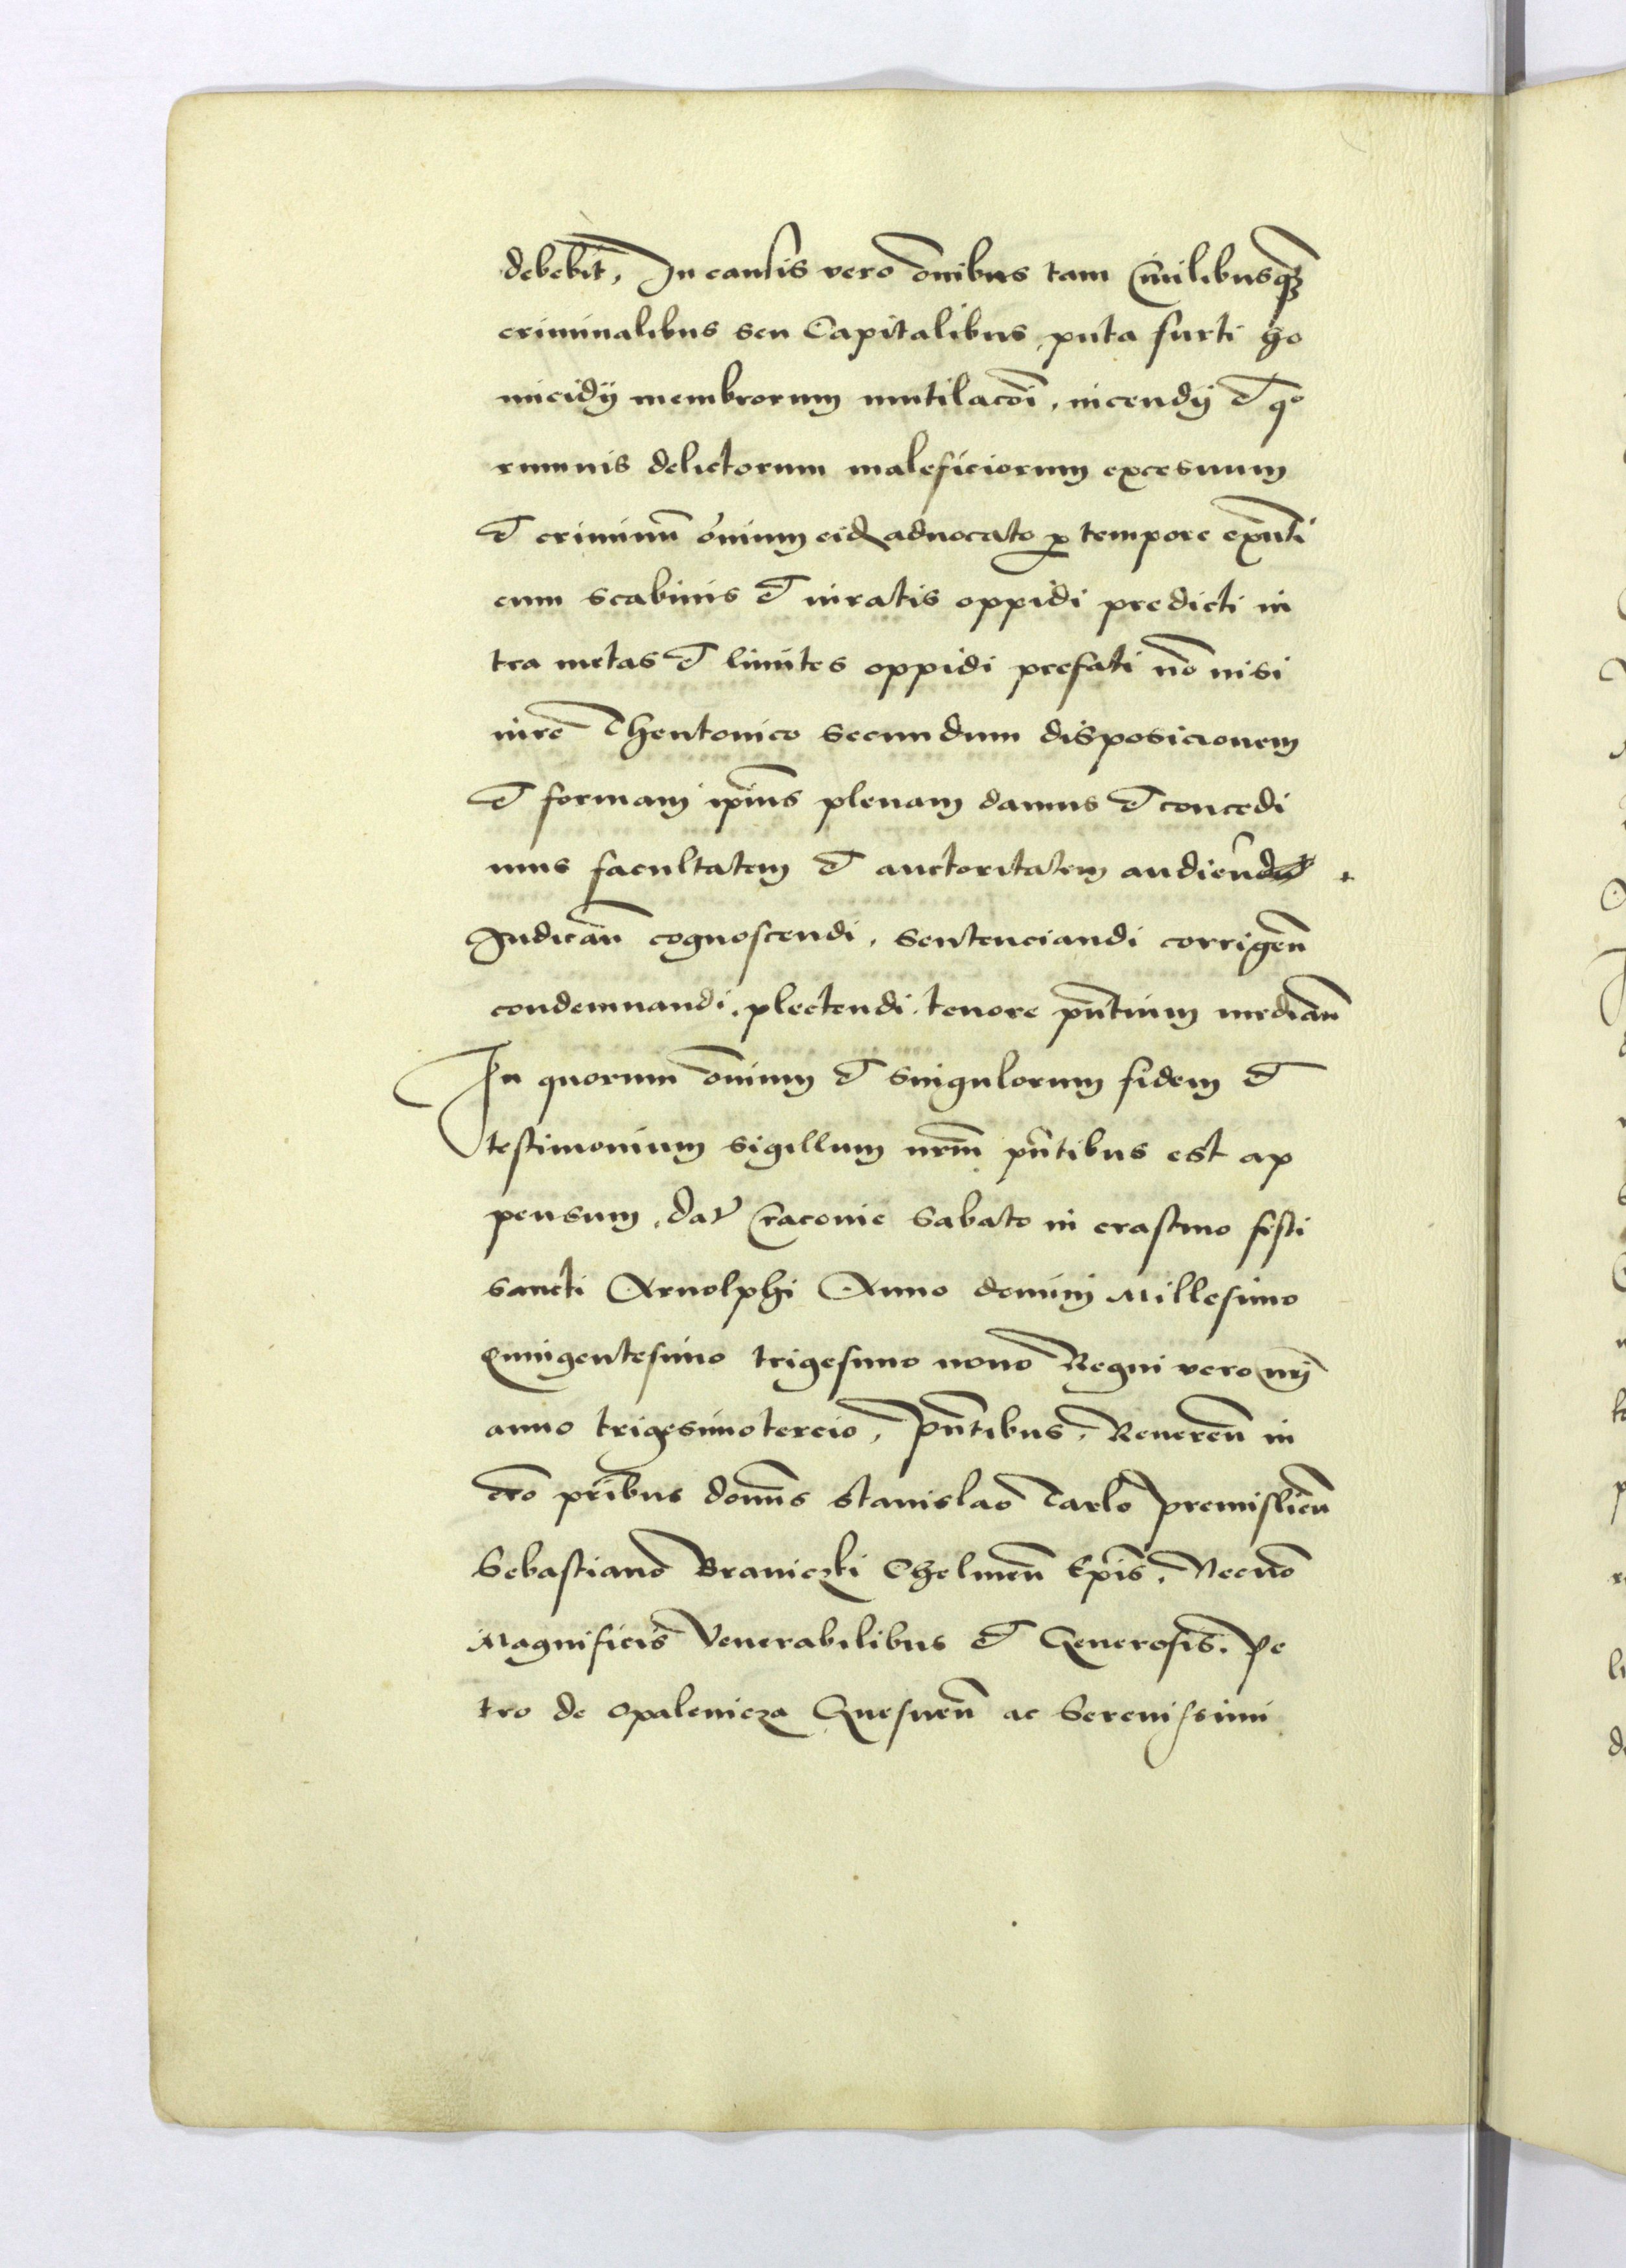 debebit̄, In causis vero om̄ibus tam Ciuilibus q̄ꝫ
criminalibus seu Capitalibus puta furti ho
micidij membrorum mutilac̄oi, incendij et qo
rumuis delictorum maleficiorum excesuum
et criminū om̄ium eid advocato ꝓ tempore exn̄ti
cum scabinis et iuratis oppidi predicti in
tra metas et limites oppidi prefati nō nisi
iure Theutonico secundum disposicionem
et formam ip̄ius plenam damus et concedi
mus facultatem et auctoritatem audien̄d
Iudicān cognoscendi, sentenciandi corrigēn
condemnandi, plectendi tenore pn̄tium mediān
In quorum om̄ium et singulorum fidem et
testimonium sigillum nr̄m pn̄tibus est ap
pensum, dat Cracouie Sabato in crastino festi
sancti Arnolphi Anno domini Millesimo
Quingentesimo trigesimo nono Regni vero nr̄j
anno trigesimotercio, Pn̄tibus, Reuerēn in
cr̄o pr̄ibus domīs Stanislao Tarlo Premisliēn
Sebastiano Braniczki Chelmēn Ep̄is, Necnō
Magnificis Venerabilibus et Generosis, Pe
tro de Opalenicza Gnesnēn ac Serenissimi